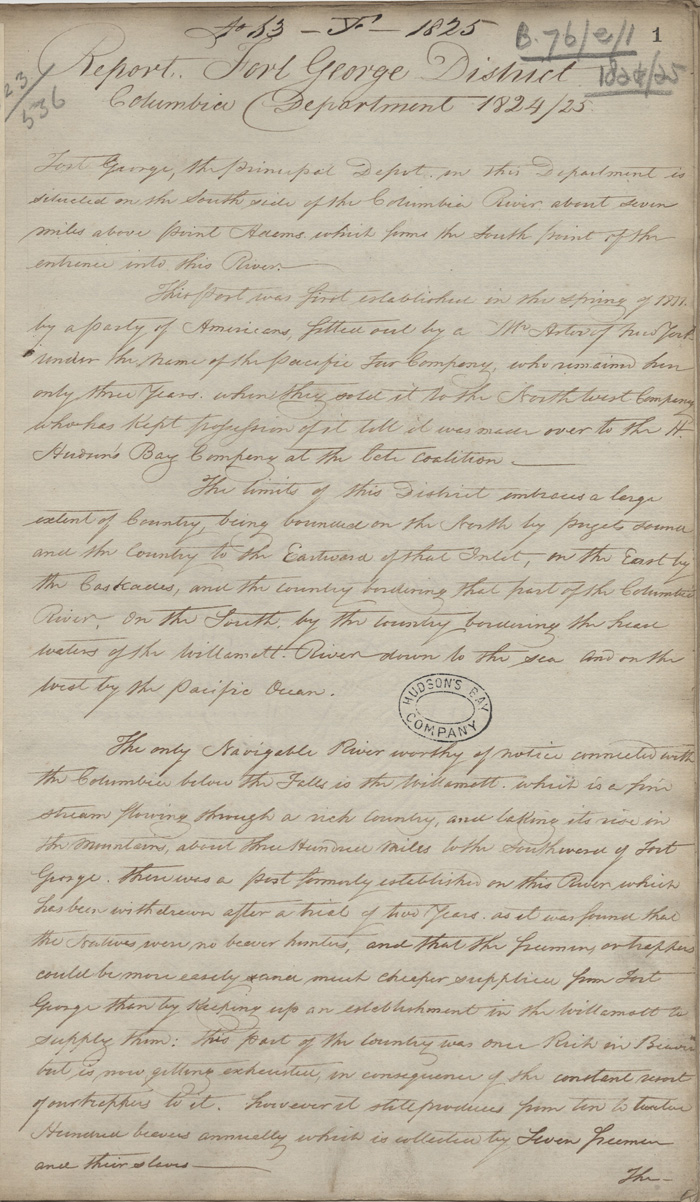 1825
B.76/e/1
1
1824/25
23/536
Report. Fort George District
Columbia Department 1824/25
Fort George, the principal Depot in this Department is
situated on the South side of the Columbia River about seven
miles above point Adams which forms the South point of the
entrance into this River.
This post was first established in the spring of 1811.
by a party of Americans, fitted out by a Mr Astor of New York
under the Name of the Pacific Fur Company, who remained here
only three Years. when they sold it to the North West Company
who has kept possession of it till it was made over to the H.
Hudson's Bay Company at the late coalition.
The limits of this District embraces a large
extent of Country, being bounded on the North by pugets sound
and the Country to the Eastward of that Inlet, on the East by
the Caskades, and the country bordering that part of the Columbia
River, on the South, by the country bordering the head
waters of the Willamatt River down to the sea and on the
west by the Pacific Ocean.
HUDSON'S BAY
COMPANY
The only Navigable River worthy of notice connected with
the Columbia below the Falls is the Willamatt. which is a fine
stream flowing through a rich Country, and taking its rise in
the mountains, about three Hundred miles to the Southward of Fort
George. there was a post formerly established on this River which
has been withdrawn after a trial of two Years. as it was found that
the Natives were no beaver hunters, and that the freemen, or trappers
could be more easely and much cheaper supplied from Fort
George than by Keeping up an establishment in the Willamatt to
supply them: this part of the country was once Rich in Beaver
but is now getting exhausted, in consequence of the constant resort
of our trappers to it. however it still produces from ten to twelve
Hundred beavers annually which is collected by Seven freemen
and their slaves
The